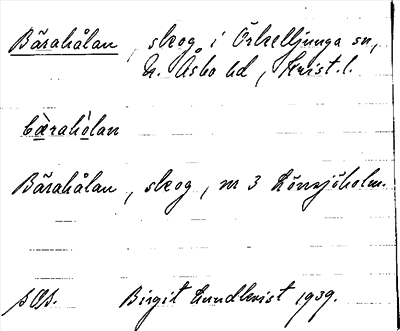 Bärahålan, skog i Örkelljunga sn,
N. Åsbo hd, Krist. l.
bæ̀rahòlan
Bärahålan, skog, nr 3 Lönnsjöholm.
Birgit Lundkvist 1939.